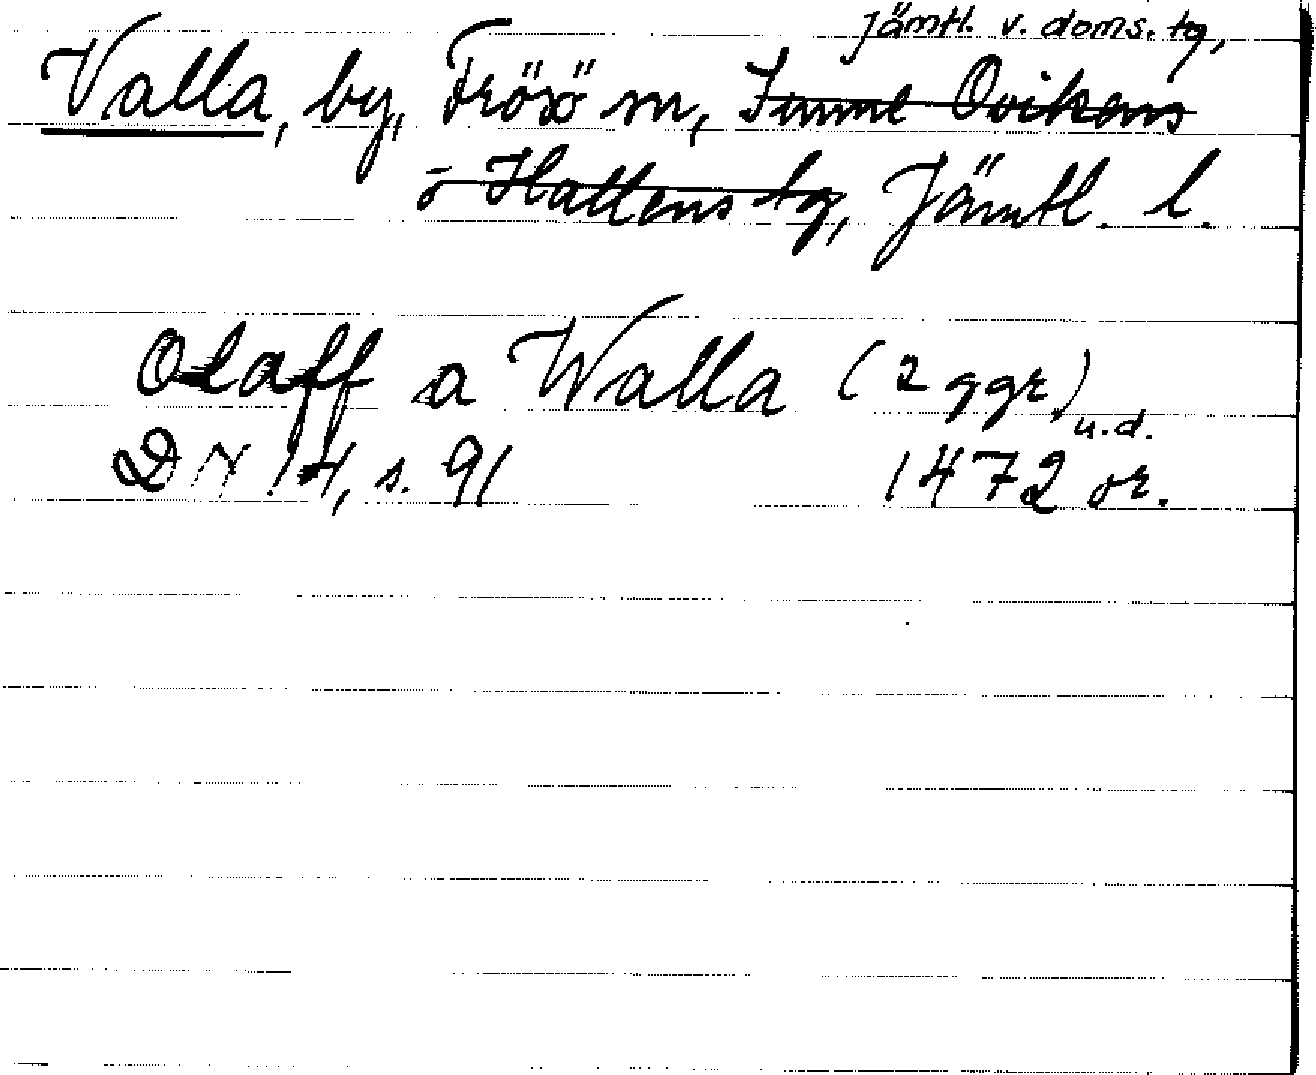 Jämtl. v. doms. tg,
Valla, by, Frösö sn, Sunne Ovikens
o Hallens tg, Jämtl. l.
Olaff a Walla (2 ggr) u.d.
DN 14, s. 91 1472 or.